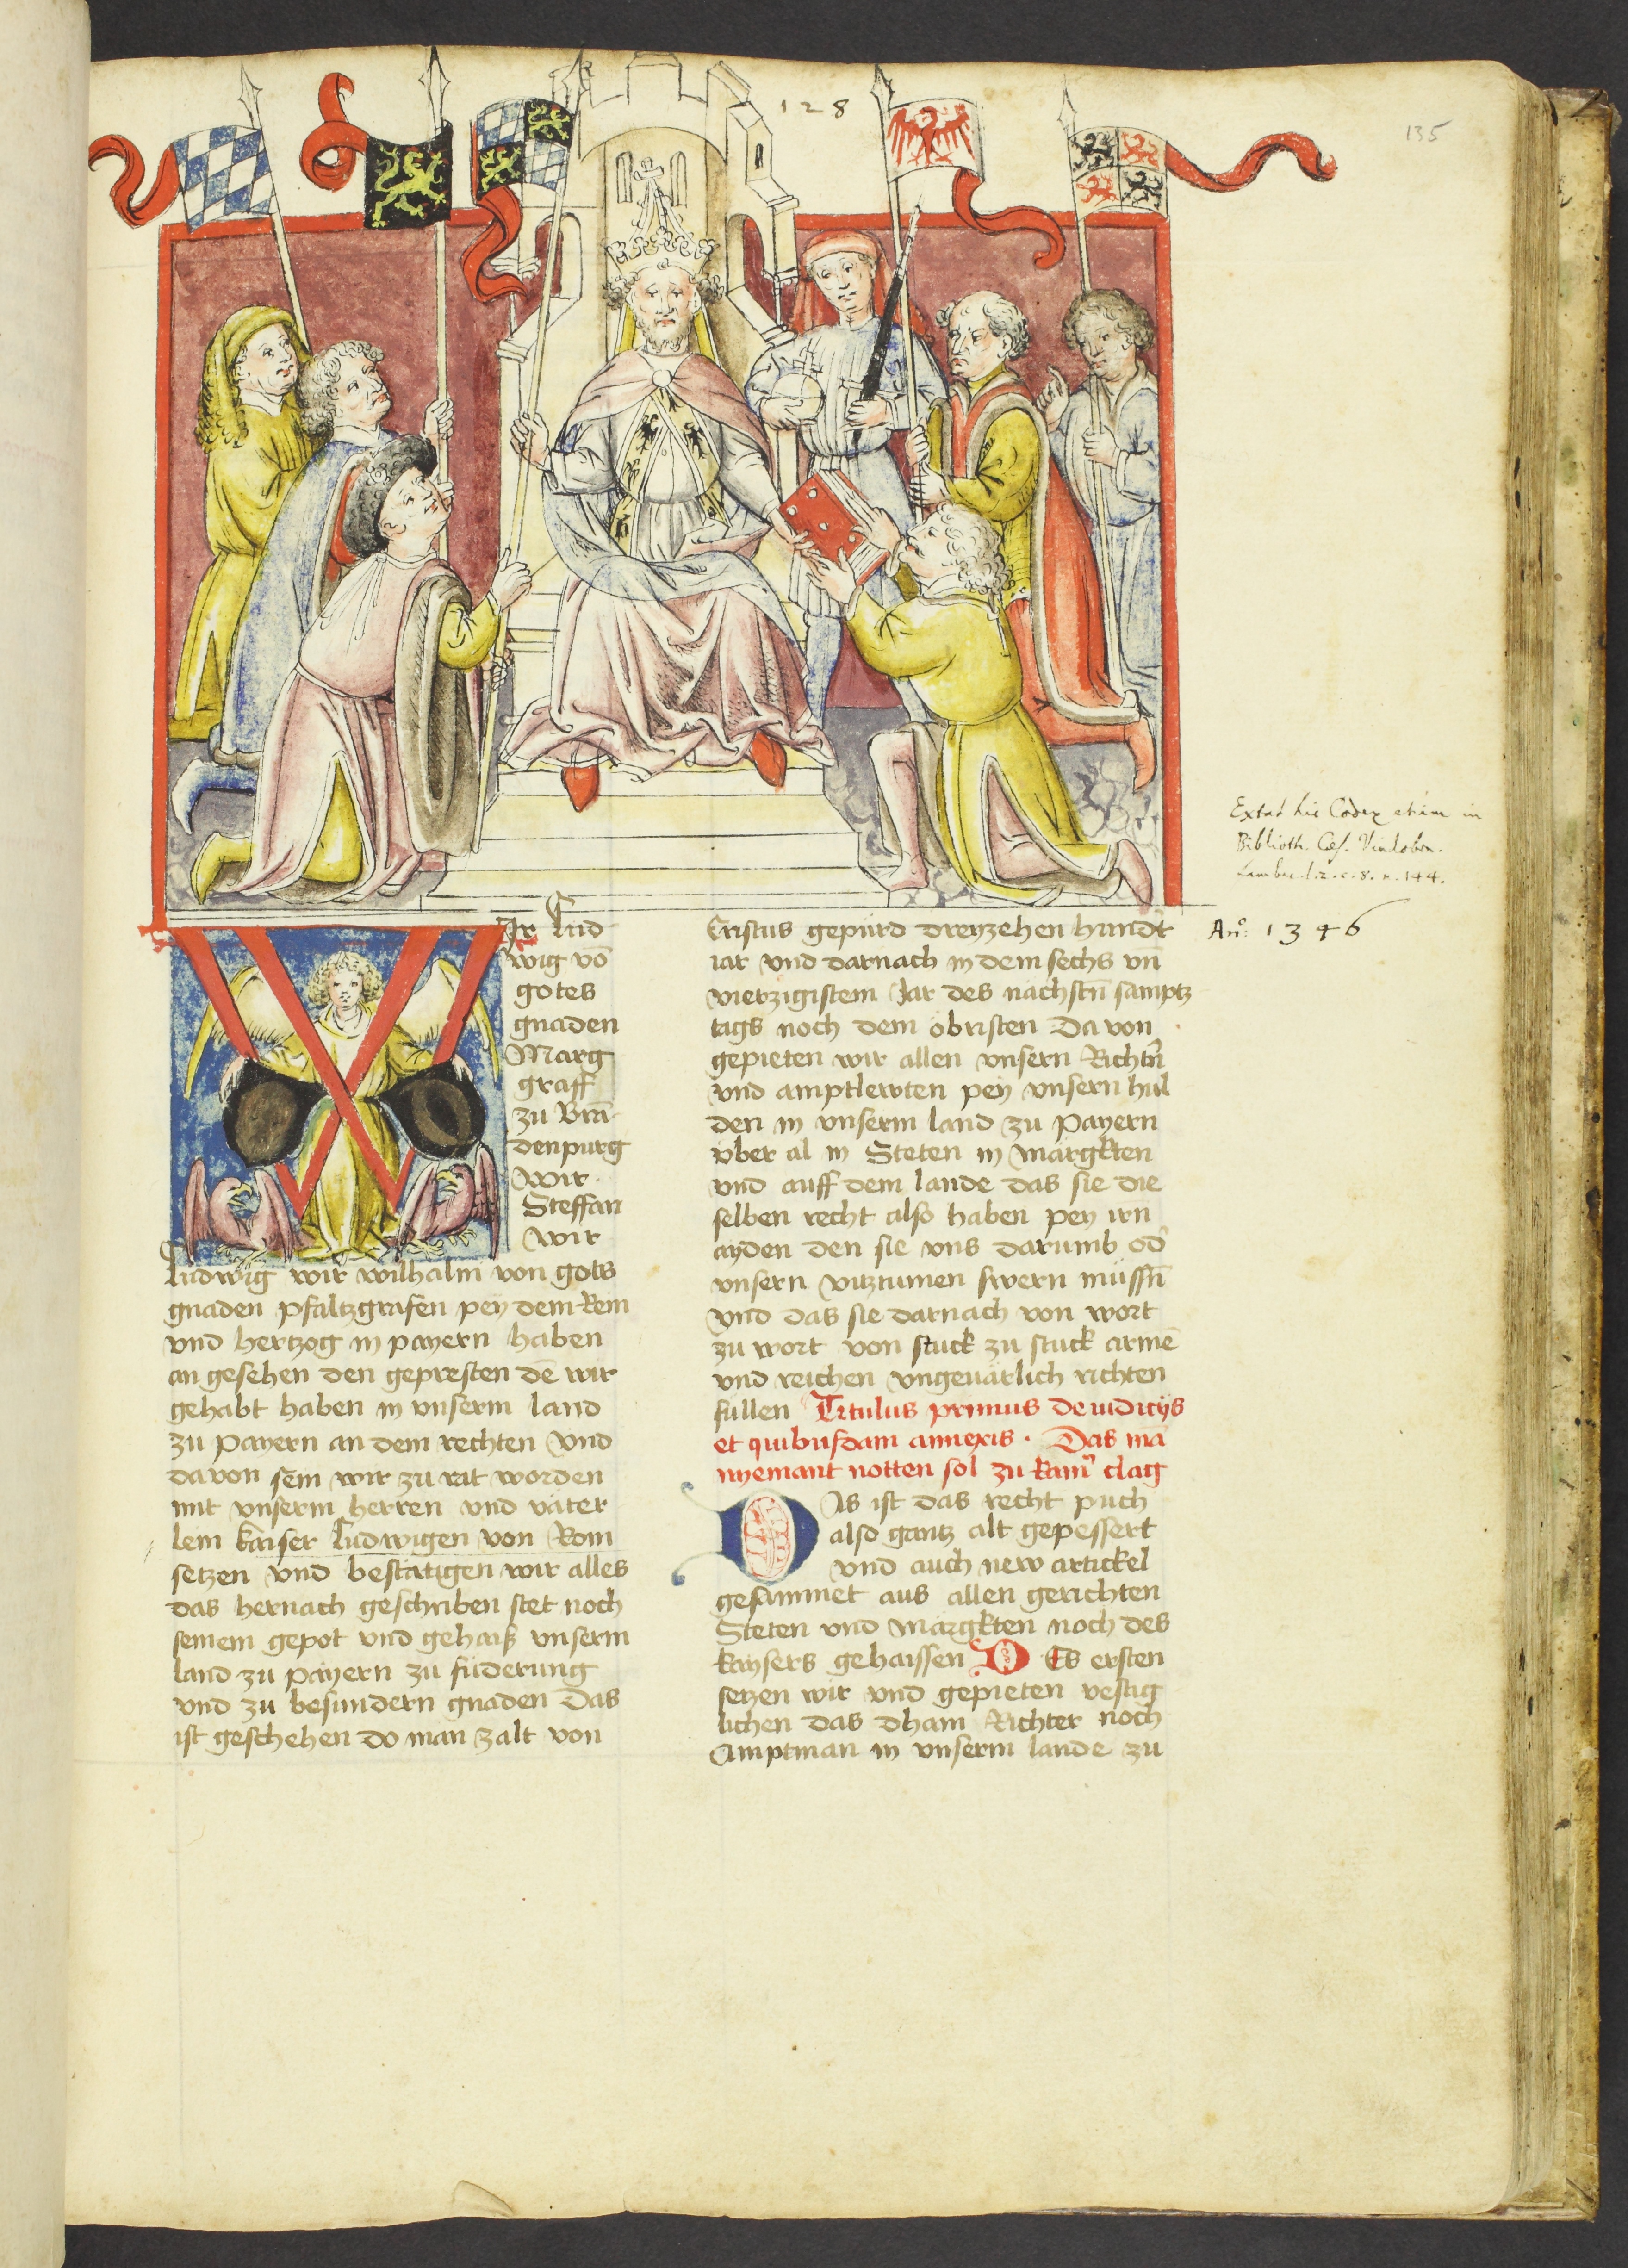 128
135
WIr Lud
wig võ
gotes
gnaden
Marg
graff
zu Brã
denpurg
Wir
Steffan
Wir
Ludwig wir wilhalm von gots
gnaden pfaltzgrafen pey dem Rein
vnd hertzog in payern haben
an gesehen den gepresten dē wir
gehabt haben in vnserm land
zu payern an dem rechten vnd
davon sein wir zu rat worden
mit vnserm herren vnd väter
lein kaiser Ludwigen von Rom
setzen vnd bestatigen wir alles
das hernach geschriben stet noch
seinem gepot vnd gehaiß vnserm
land zu payern zu füderung
vnd zu besundern gnaden Das
ist geschehen do man zalt von
Cristus gepürd dreyzehen hundt
iar vnd darnach in dem sechs vñ
vierzigistem Jar des nachstñ samptz
tags noch dem obristen Da von
gepieten wir allen vnsern Richtñ
vnd amptlewten pey vnsern hul
den in vnserm land zu payern
vber al in Steten in märgkten
vnd auff dem lande das sie die
selben recht also haben pey irn
ayden den sie vns darumb od
vnsern vitztumen swern müssñ
vnd das sie darnach von wort
zu wort von stuck zu stuck armē
vnd reichen vngeuärlich richten
sullen Titulus primus de iudicijs
et quibusdam annexis . Das mã
nyemant notten sol zu kam clag
DAs ist das recht puch
also gantz alt gepessert
vnd auch new artickel
gesammet aus allen gerichten
Steten vnd märgkten noch des
kaysers gehaissen DEs ersten
setzen wir vnd gepieten vestig
lichen das dham Richter noch
Amptman in vnserm lande zu
Extat hic Codex etiam in
Biblioth. Cæs. Vindobon.
Lambec. l. 2. c. 8. n. 144.
An°: 1346